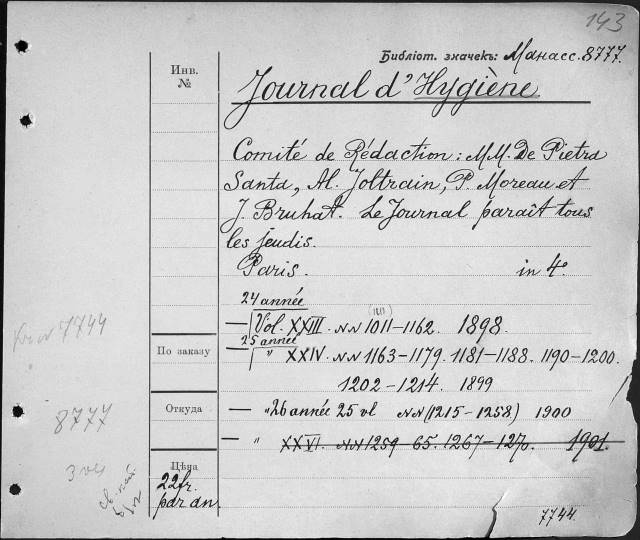 143
Библіот. значекъ: Манасс. 8777.
Инв.
№
Journal d'Hygiène
Comité de Rédaction: M.M. De Pietra
Santa, Al. Joltrain, P. Moreau et
J. Bruhat. Le Journal paraît tous
les jeudis.
Paris. in 4º.
24 année
— Vol. XXIII. NN 1011-1162. 1898.
25 année
— " XXIV. NN 1163-1179. 1181-1188. 1190-1200.
1202-1214. 1899
— " 26 année 25 vl NN (1215-1258) 1900
— " XXVI. NN 1259 65. 1267-1270. 1901.
По заказу
Откуда
Цѣна
22 fr.
par an.
7744
8777
7744.